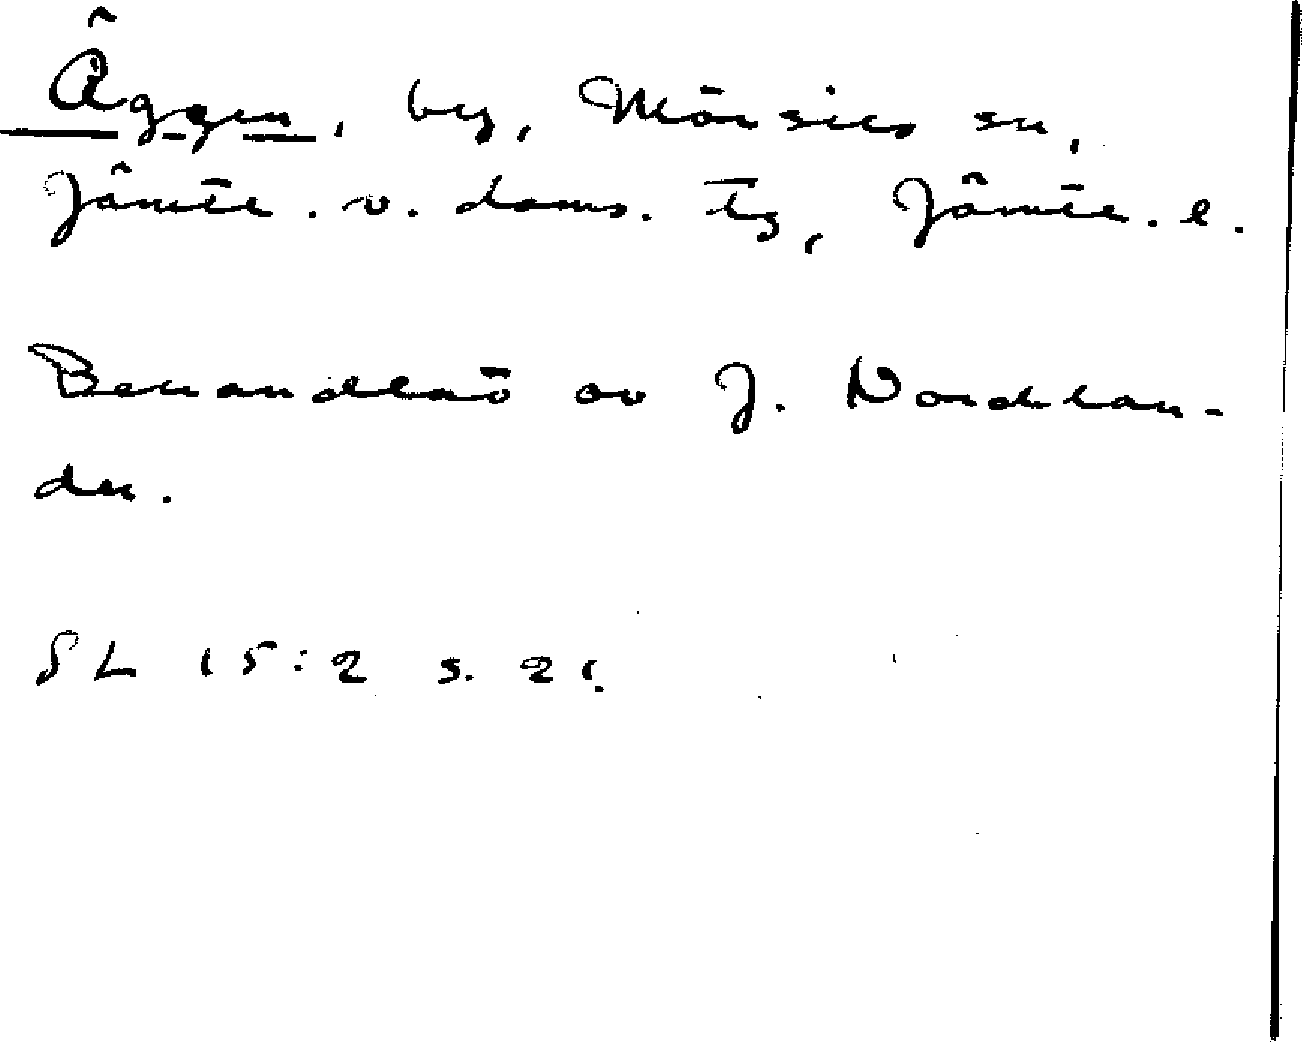 Äggen, by, Mörsils sn,
Jämtl. v. doms. tg, Jämtl. l.
Behandlat av J. Nordlan-
der.
SL 15:2 s. 21.